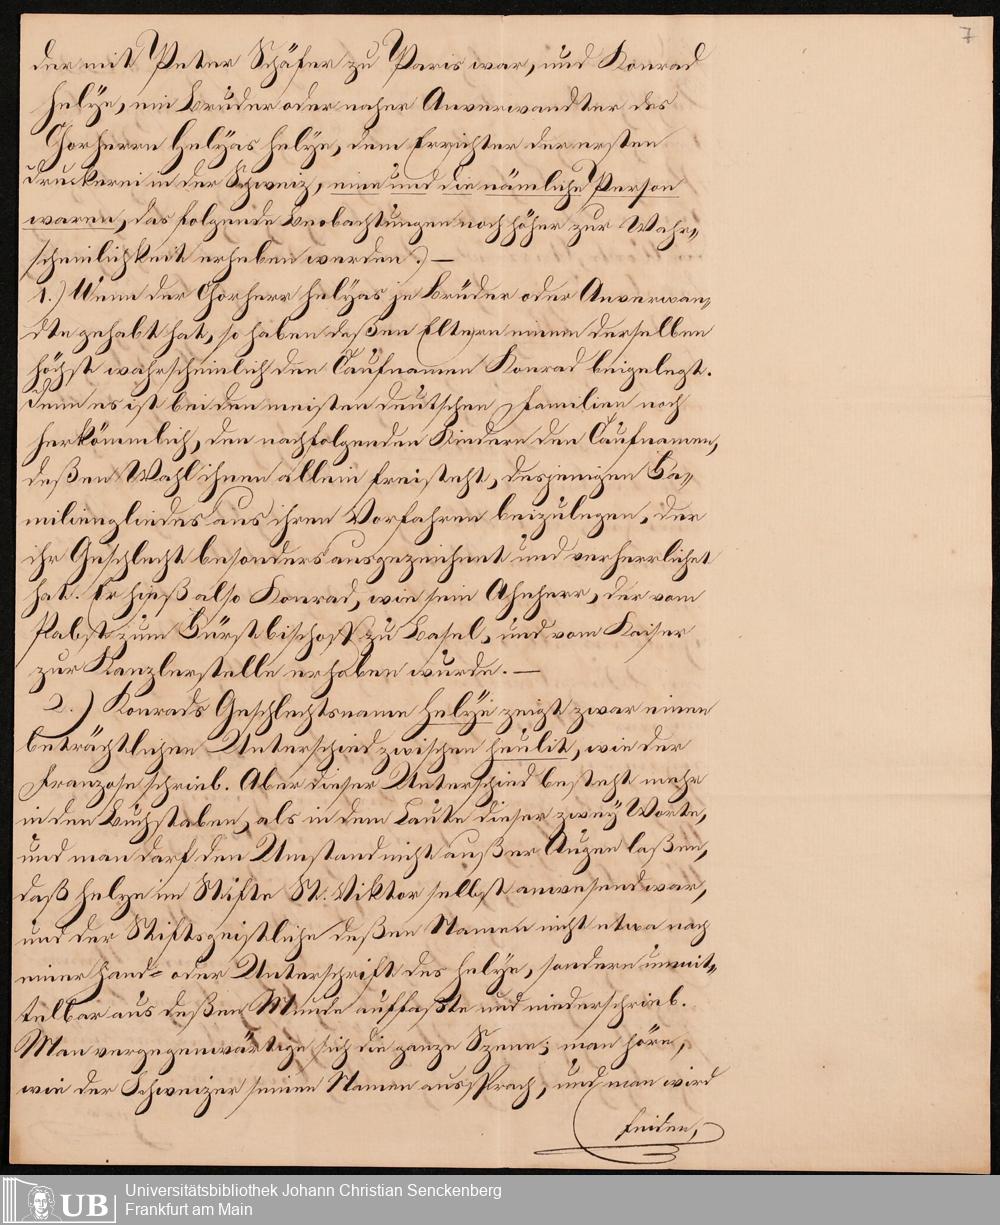 7
der mit Peter Schäfer zu Paris war, und Konrad
Helÿe, ein Bruder oder naher Anverwandter des
Chorherrn Helÿas Helÿe, dem Errichter der ersten
Druckerei in der Schweiz, eine und die nämliche Person
waren, das folgende Beobachtungen noch höher zur Wahr„
scheinlichkeit erheben werden.) —
1.) Wenn der Chorherr Helÿas je Brüder oder Anverwan„
dte gehabt hat, so haben deßen Eltern einem derselben
höchst wahrscheinlich den Taufnamen Konrad beigelegt.
Denn es ist bei den meisten deutschen Familien noch
herkömmlich, den nachfolgenden Kindern den Taufnamen,
deßen Wahl ihnen allein freisteht, desjenigen Fa„
miliengliedes aus ihren Vorfahren beizulegen, der
ihr Geschlecht besonders ausgezeichnet und verherrlichet
hat. Er hieß also Konrad, wie sein Ahnherr, der vom
Pabst zum Fürstbischoff zu Basel, und vom Kaiser
zur Kanzlerstelle erhoben wurde. —
2.) Konrads Geschlechtsname Helÿe zeigt zwar einen
beträchtlichen Unterschied zwischen Heulit, wie der
Franzose schrieb. Aber dieser Unterschied besteht mehr
in den Buchstaben, als in dem Laute dieser zweÿ Worte,
und man darf den Umstand nicht außer Augen laßen,
daß Helye im Stifte St. Viktor selbst anwesend war,
und der Stiftsgeistliche deßen Namen nicht etwa nach
einer Hand= oder Unterschrift des Helÿe, sondern unmit„
telbar aus deßen Munde auffaßte und niederschrieb.
Man vergegenwärtige sich die ganze Szene; man höre,
wie der Schweizer seinen Namen aussprach, und man wird
finden,
UB
Universitätsbibliothek Johann Christian Senckenberg
Frankfurt am Main